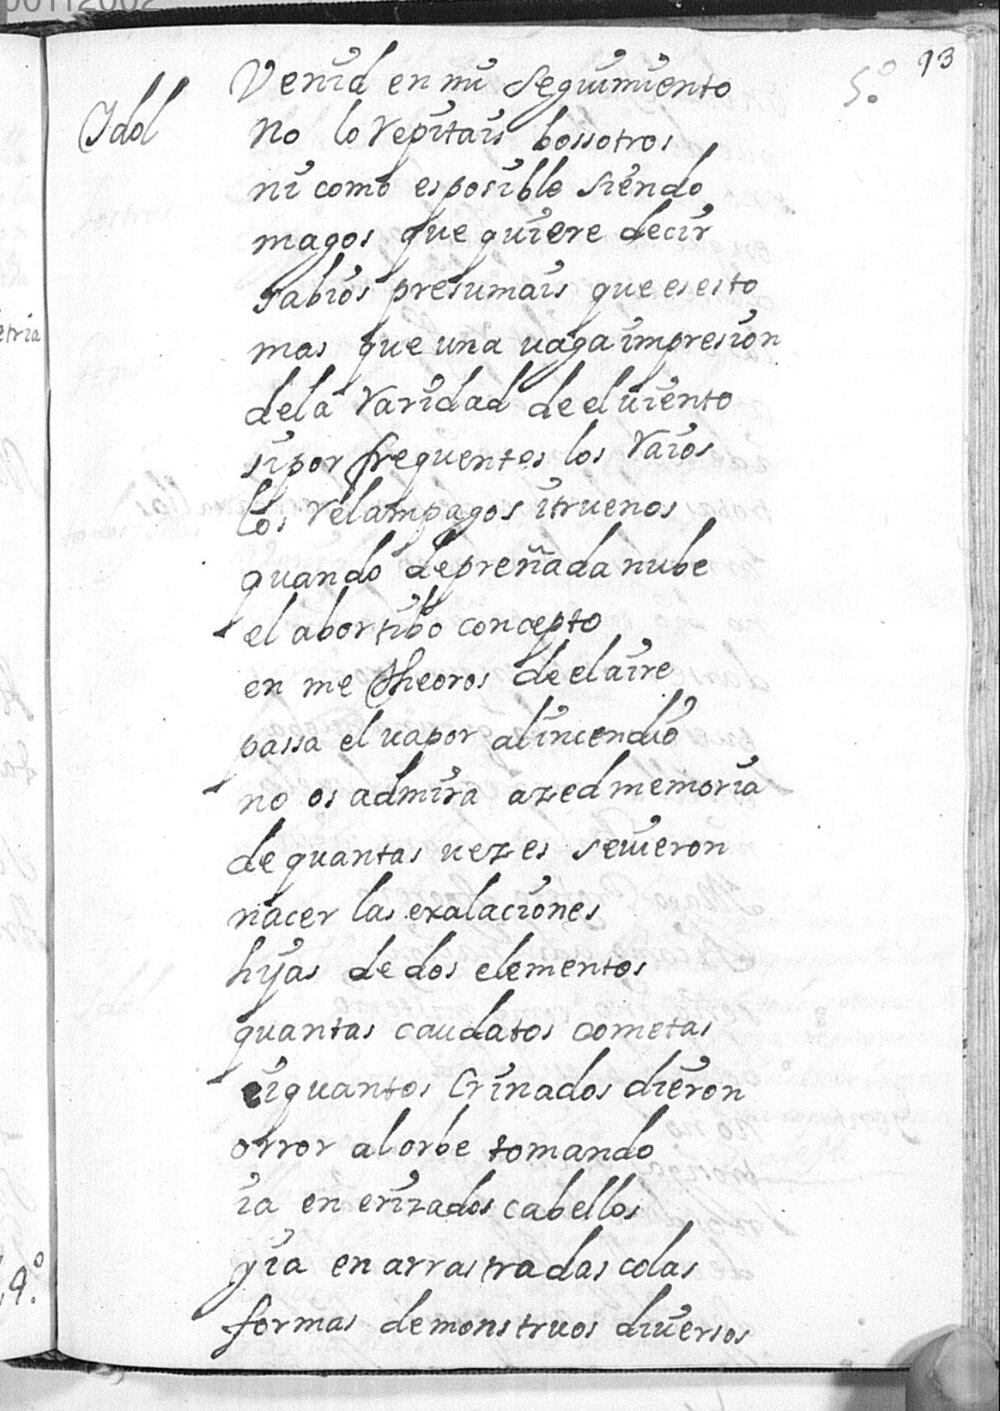 00112002
5.º 93
Venid en mi seguimiento
Idol No lo repitais bossotros
ni como es posible siendo
magos que quiere decir
sabios presumais que es esto
mas que una uaga impresion
de la varidad de el uiento
si por frequentes los raios
los relampagos itruenos
quando de preñada nube
el abortibo concepto
en me theoros de el aire
passa el uapor al incendio
no os admira azed memoria
de quantas uezes se uieron
nacer las exalaciones
hijas de dos elementos
quantas caudatos cometas
i quantos Crinados dieron
orror al orbe tomando
ia en erizados cabellos
y ia en arrastradas colas
formas de monstruos diuersos
etria
4.º